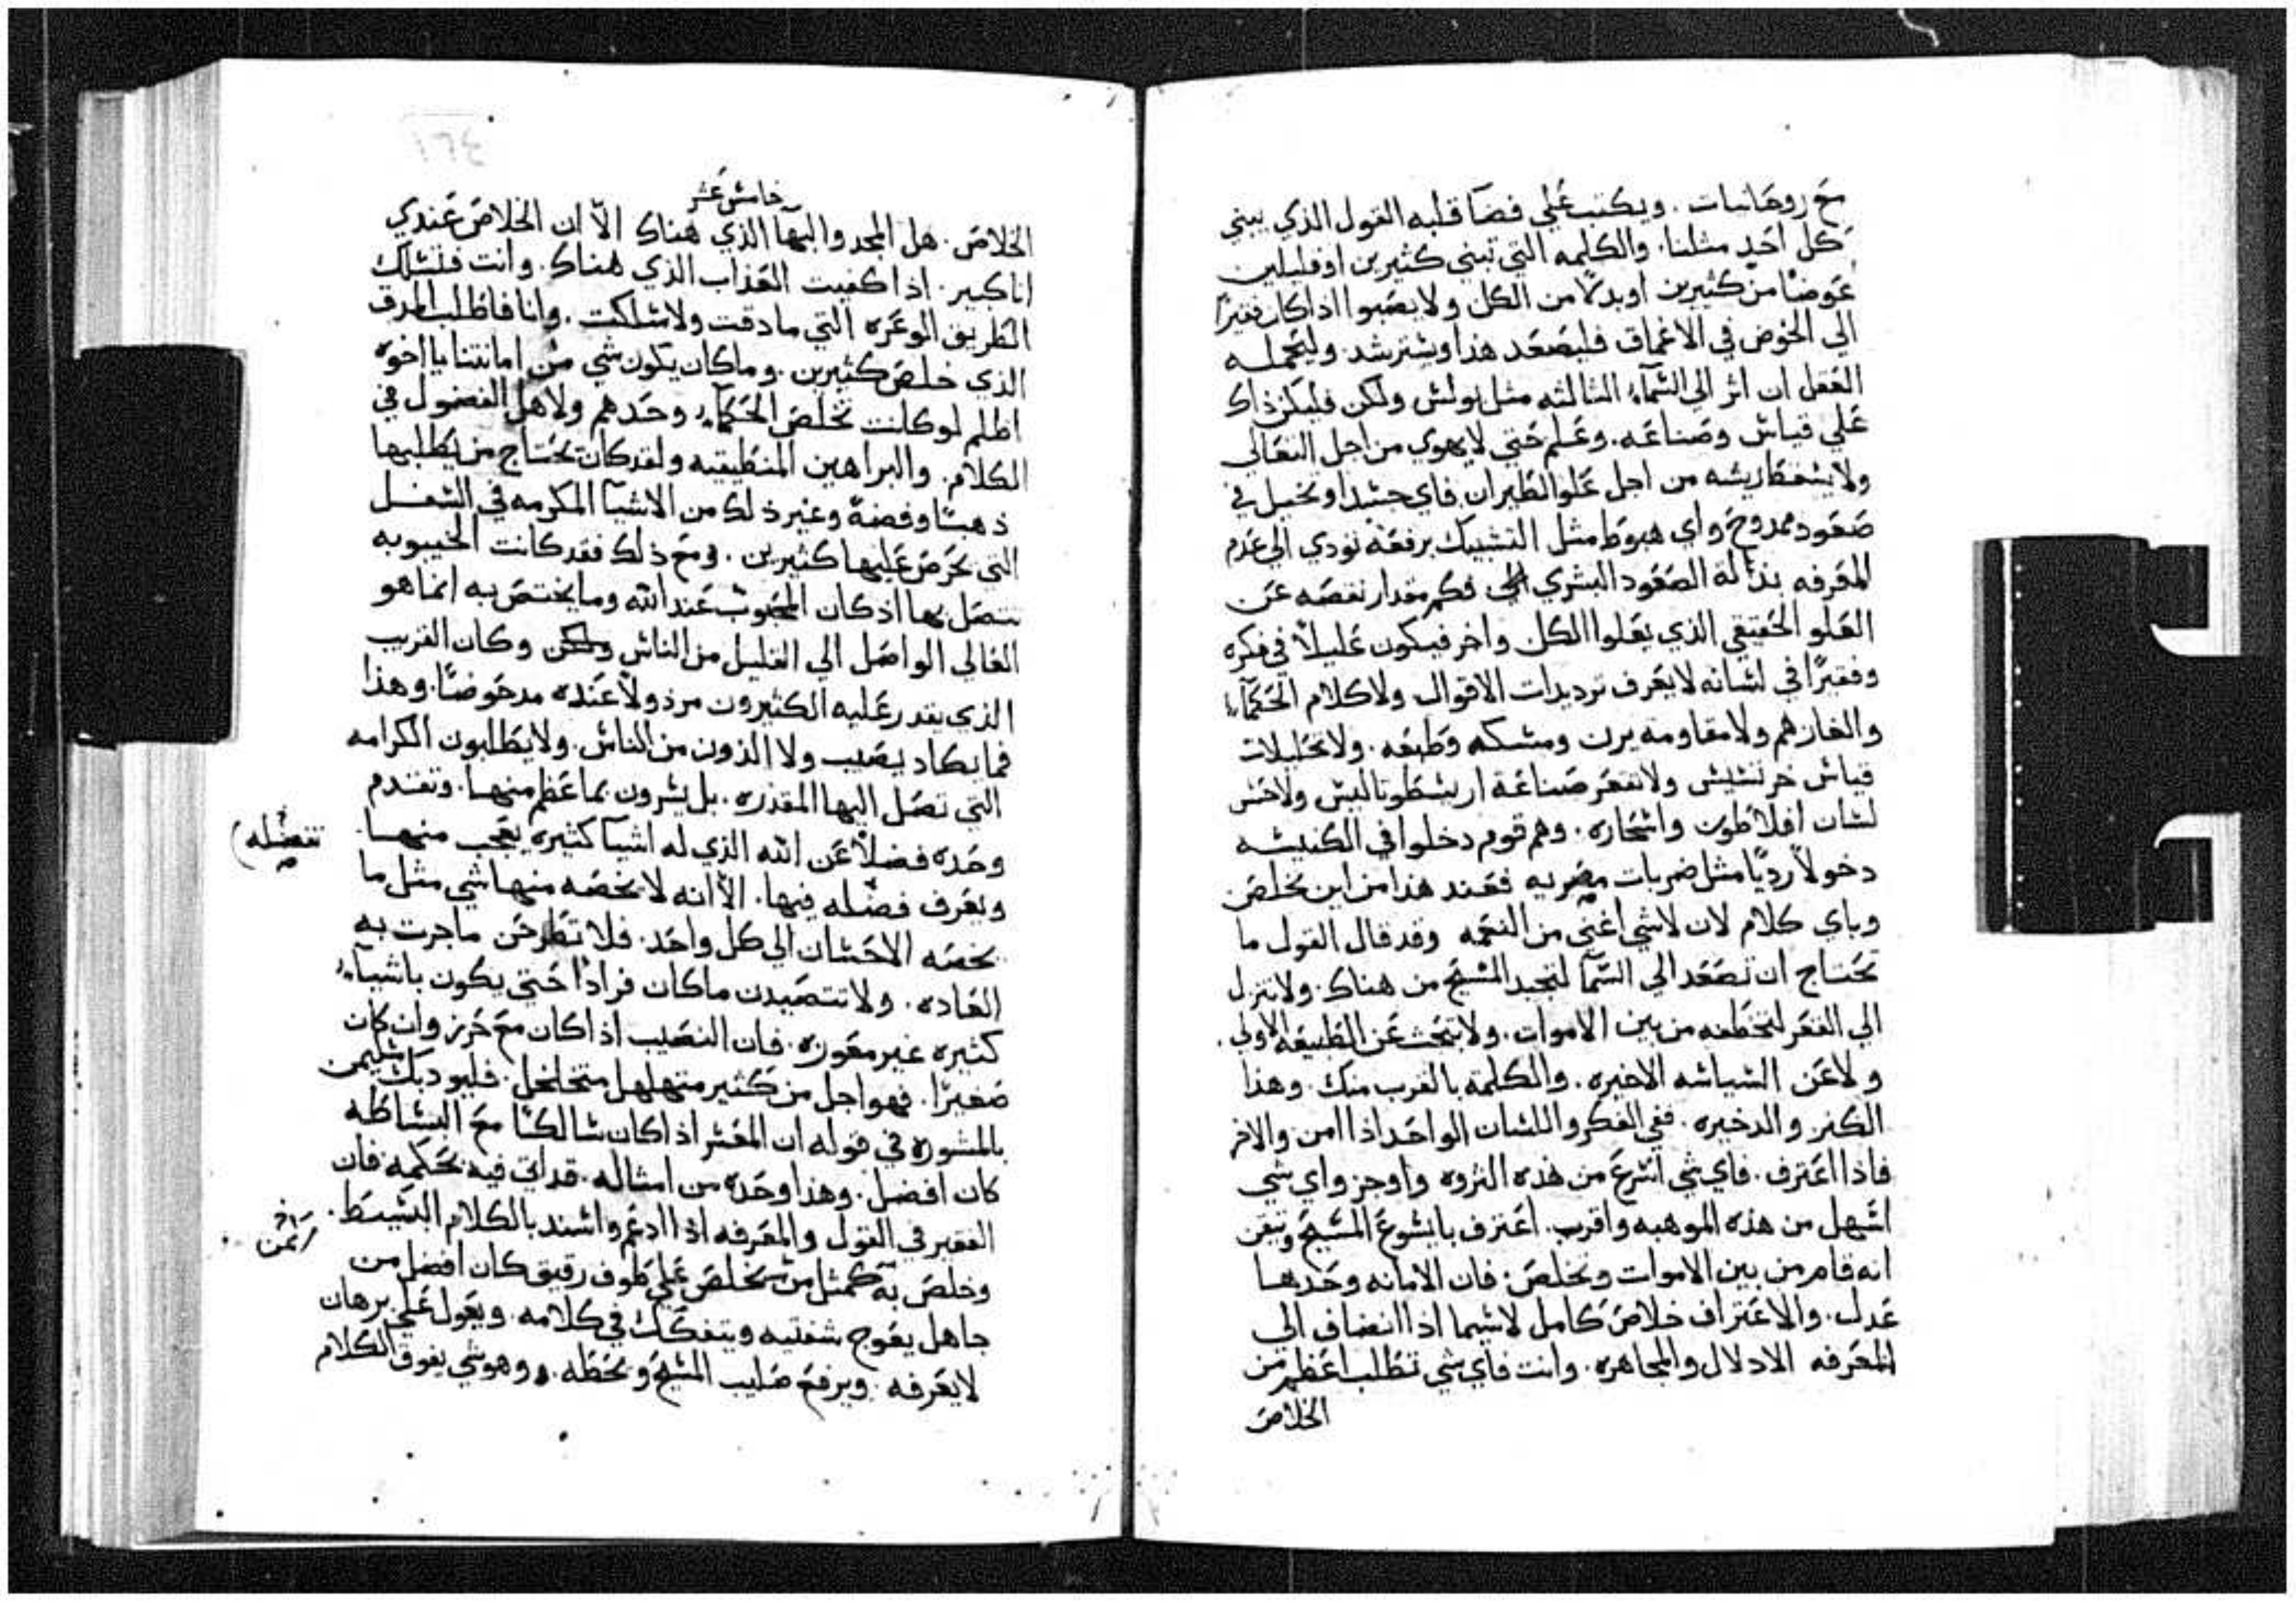 مع روحانيات . ويكتب علي فضا قلبه القول الذي يبني
كل احد مثلنا . والكلمه التي تبني كثيرين او قليلين
عوضًا من كثيرين او بدلًا من الكل ولا يصبوا اذا كان فقيرًا
الي الخوض في الاعماق فليصعد هذا ويسترشد وليحمله
العقل ان اثر الي السماء الثالثه مثل بولس ولكن فليكن ذاك
علي قياس وصناعه . وعلم حتي لا يهوي من اجل التعالي
ولا يسقط ريشه من اجل علو الطيران فاي حسد او تخيل في
صعود ممدوح واي هبوط مثل التشبيك برفعه تودي الي عدم
المعرفه بنذالة الصعود البشري فكم مقدار نقصه عن
العلو الحقيقي الذي يعلوا الكل واخر فيكون عليلًا في فكره
وفقيرًا في لسانه لا يعرف ترديدات الاقوال ولا كلام الحكماء
والغازهم ولا مقاومه برن ومسكه وطبعه . ولا تحليلات
قياس خرنسيس ولا تقعر صناعة اريسطوتاليس ولا حس
لسان افلاطون واسحاره . وهم قوم دخلوا في الكنيسه
دخولًا رديًا مثل ضربات مصريه فعند هذا من اين تخلص
وباي كلام لان لا شي اغني من النعمه وقد قال القول ما
تحتاج ان تصعد الي السما لتجبد المسيح من هناك . ولا تنزل
الي القعر لتخطفه من بين الاموات . ولا تبحث عن الطبيعه الاولي .
ولا عن السياسه الاخيره . والكلمة بالقرب منك . وهذا
الكنز والدخيره . ففي الفكر واللسان الواحد اذا امن والاخر
فاذا اعترف . فاي شي اسرع من هذه الثروه واوجز واي شي
اسهل من هذه الموهبه واقرب . اعترف بايسوع المسيح وتيقن
انه قام من بين الاموات وتخلص : فان الامانه وحدها
عدل . والاعتراف خلاص كامل لاسيما اذا انضاف الي
المعرفه الادلال والمجاهره . وانت فاي شي تطلب اعظم من
الخلاص
خامس عشر
الخلاص . هل المجد والبها الذي هناك الّا ان الخلاص عندي
انا كبير . اذا كفيت العذاب الذي هناك . وانت فتسلك
الطريق الوعره التي ما دقت ولا سلكت . وانا فاطلب الطرق
الذي خلص كثيرين . وما كان يكون شي من امانتنا يا اخوه
اظلم لو كانت تخلص الحكماء وحدهم ولا هل الفضول في
الكلام . والبراهين المنطيقيه ولقد كان تحتاج من يطلبها
ذهبًا وفضةً وغير ذلك من الاشيا المكرمه في السفل
التي تحرص عليها كثيرين . ومع ذلك فقد كانت الخيبوبه
تتصل بها اذ كان المحبوب عند الله وما يختص به انما هو
العالي الواصل الي القليل من الناس وكان القريب
الذي يقدر عليه الكثيرون مرذولًا عنده مدحوضًا . وهذا
فما يكاد يصيب ولا الدون من الناس . ولا يطلبون الكرامه
التي تصل اليها المقدره . بل يسرون بما عظم منها . وتقدم
وحده فضلًا عن الله الذي له اشيآ كثيره يعجب منها .
تفضله
ويعرف فضله فيها . الّا انه لا يخصه منها شي مثل ما
يخصه الاحسان الي كل واحد . فلا تطرحن ما جرت به
العاده . ولا تتصيدن ما كان فرادًا حتي يكون باشياء
كثيره غير معوزه . فان النصيب اذا كان مع حرز وان كان
صغيرًا . فهو اجل من كثير متهلهل متخلخل . فليودبك سليمن
بالمشوره في قوله ان المعسر اذا كان سالكًا مع البساطه
كان افضل . وهذا وحده من امثاله . قد اتي فيه بحكمه فان
الفقير في القول والمعرفه اذا ادعم واسند بالكلام البسيط .
وخلص به كمثل من يخلص علي طوف رقيق كان افضل من
جاهل يعوج شفتيه ويتفكك في كلامه . ويعول علي برهان
لا يعرفه . ويرفع صليب المسيح ويحطه . وهو شي يفوق الكلام